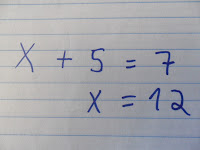 X + 5 = 7
x = 12